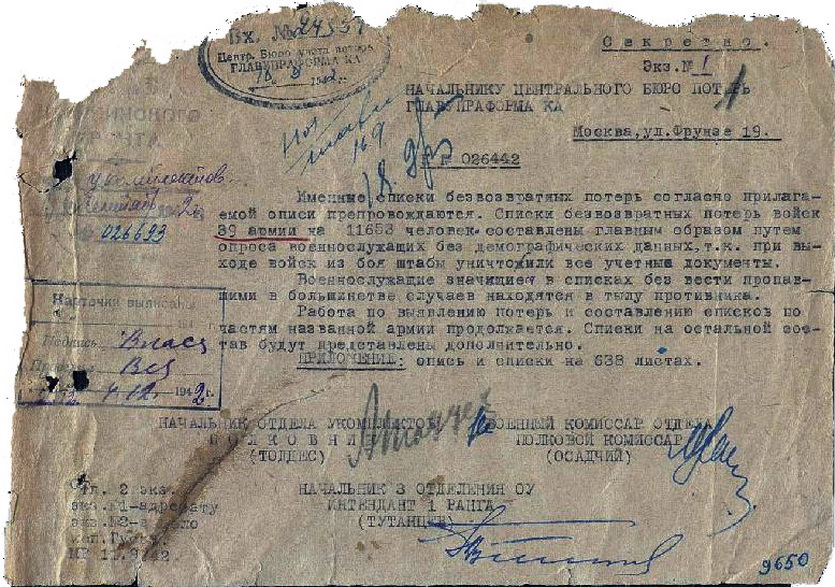 Вх. №24551
Центр. Бюро учета потерь
ГЛАВУПРАФОРМА КА
1942 г.
Секретно.
Экз.№ 1
НАЧАЛЬНИКУ ЦЕНТРАЛЬНОГО БЮРО ПОТЕРЬ
ГЛАВУПРАФОРМА КА
Москва,ул.Фрунзе 19.
№ 026442
026693
Именные списки безвозвратных потерь согласно прилага-
емой описи препровождаются. Списки безвозвратных потерь войск
39 армии на 11653 человек составлены главным образом путем
опроса военнослужащих без демографических данных,т.к. при вы-
ходе войск из боя штабы уничтожили все учетные документы.
Военнослужащие значащиеся в списках без вести пропав-
шими в большинстве случаев находятся в тылу противника.
Работа по выявлению потерь и составлению списков по
частям названной армии продолжается. Списки на остальной сос-
тав будут представлены дополнительно.
ПРИЛОЖЕНИЕ: опись и списки на 638 листах.
Карточки выписаны
Подпись
1942 г.
НАЧАЛЬНИК ОТДЕЛА УКОМПЛЕКТОВ
ПОЛКОВНИК
(ТОЛПЕС)
ВОЕННЫЙ КОМИССАР ОТДЕЛА
ПОЛКОВОЙ КОМИССАР
(ОСАДЧИЙ)
НАЧАЛЬНИК 3 ОТДЕЛЕНИЯ ОУ
ИНТЕНДАНТ 1 РАНГА
(ТУТАНЦЕВ)
Отп. 2 экз.
экз.№1-адресату
экз.№2-в дело
9650